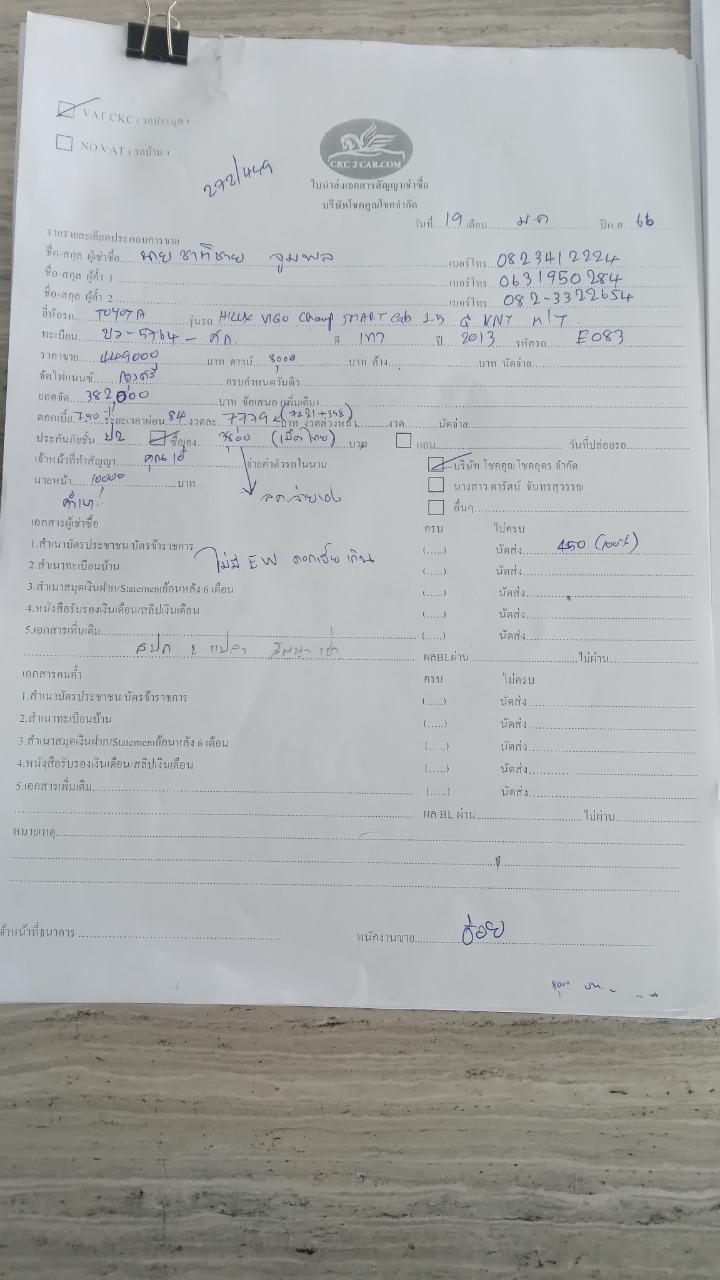 VAT CKC ( รถประมูล )
NO VAT ( รถบ้าน )
CKC 2 CAR.COM
272/449
ใบนำส่งเอกสารสัญญาเช่าซื้อ
บริษัทโชคคูณโชคจำกัด
วันที่ 19 เดือน ม.ค ปีพ.ศ 66
รายรายละเอียดประกอบการขาย
ชื่อ-สกุล ผู้เช่าซื้อ นาย ชาติชาย จูมพล เบอร์โทร. 0823412224
ชื่อ-สกุล ผู้ค้ำ 1 เบอร์โทร. 0631950284
ชื่อ-สกุล ผู้ค้ำ 2 เบอร์โทร. 082-3322654
ยี่ห้อรถ TOYOTA รุ่นรถ HILUX VIGO Champ SMART Cab 2.5 G VNT M/T
ทะเบียน 5764 สี เทา ปี 2013 รหัสรถ E083
ราคาขาย 449000 บาท ดาวน์ 8,000 บาท ค้าง บาท นัดจ่าย
จัดไฟแนนซ์ กรุงศรี ครบกำหนดวันดิว
ยอดจัด 382,000 บาท ข้อเสนอ (เพิ่มเติม)
ดอกเบี้ย 7.90 ระยะเวลาผ่อน 84 งวดละ 7,779 (7421+358) บาท งวดล่วงหน้า งวด นัดจ่าย
ประกันภัยชั้น ป2 ซื้อเอง 7,800 บาท แถม วันที่ปล่อยรถ
เจ้าหน้าที่ทำสัญญา คุณ โอ๋ จ่ายค่าตัวรถในนาม บริษัท โชคคูณโชคอุดร จำกัด
นายหน้า 10000 บาท นางสาว ดารัตน์ จันทรสุวรรณ
ลูกค้าจ่ายเอง
อื่นๆ
เอกสารผู้เช่าซื้อ ครบ ไม่ครบ
1.สำเนาบัตรประชาชน/บัตรข้าราชการ (.....) นัดส่ง 450 (100%)
2.สำเนาทะเบียนบ้าน ไม่มี EW ดอกเบี้ย เกิน (.....) นัดส่ง
3.สำเนาสมุดเงินฝาก/Statementย้อนหลัง 6 เดือน (.....) นัดส่ง
4.หนังสือรับรองเงินเดือน/สลิปเงินเดือน (.....) นัดส่ง
5.เอกสารเพิ่มเติม (.....) นัดส่ง
สปก 2 แปลง สัญญาเช่า ผลBLผ่าน ไม่ผ่าน
เอกสารคนค้ำ ครบ ไม่ครบ
1.สำเนาบัตรประชาชน/บัตรข้าราชการ (.....) นัดส่ง
2.สำเนาทะเบียนบ้าน (.....) นัดส่ง
3.สำเนาสมุดเงินฝาก/Statementย้อนหลัง 6 เดือน (.....) นัดส่ง
4.หนังสือรับรองเงินเดือน/สลิปเงินเดือน (.....) นัดส่ง
5.เอกสารเพิ่มเติม (.....) นัดส่ง
ผล BL ผ่าน ไม่ผ่าน
หมายเหตุ
จ้าหน้าที่ธนาคาร พนักงานขาย อ๋อย